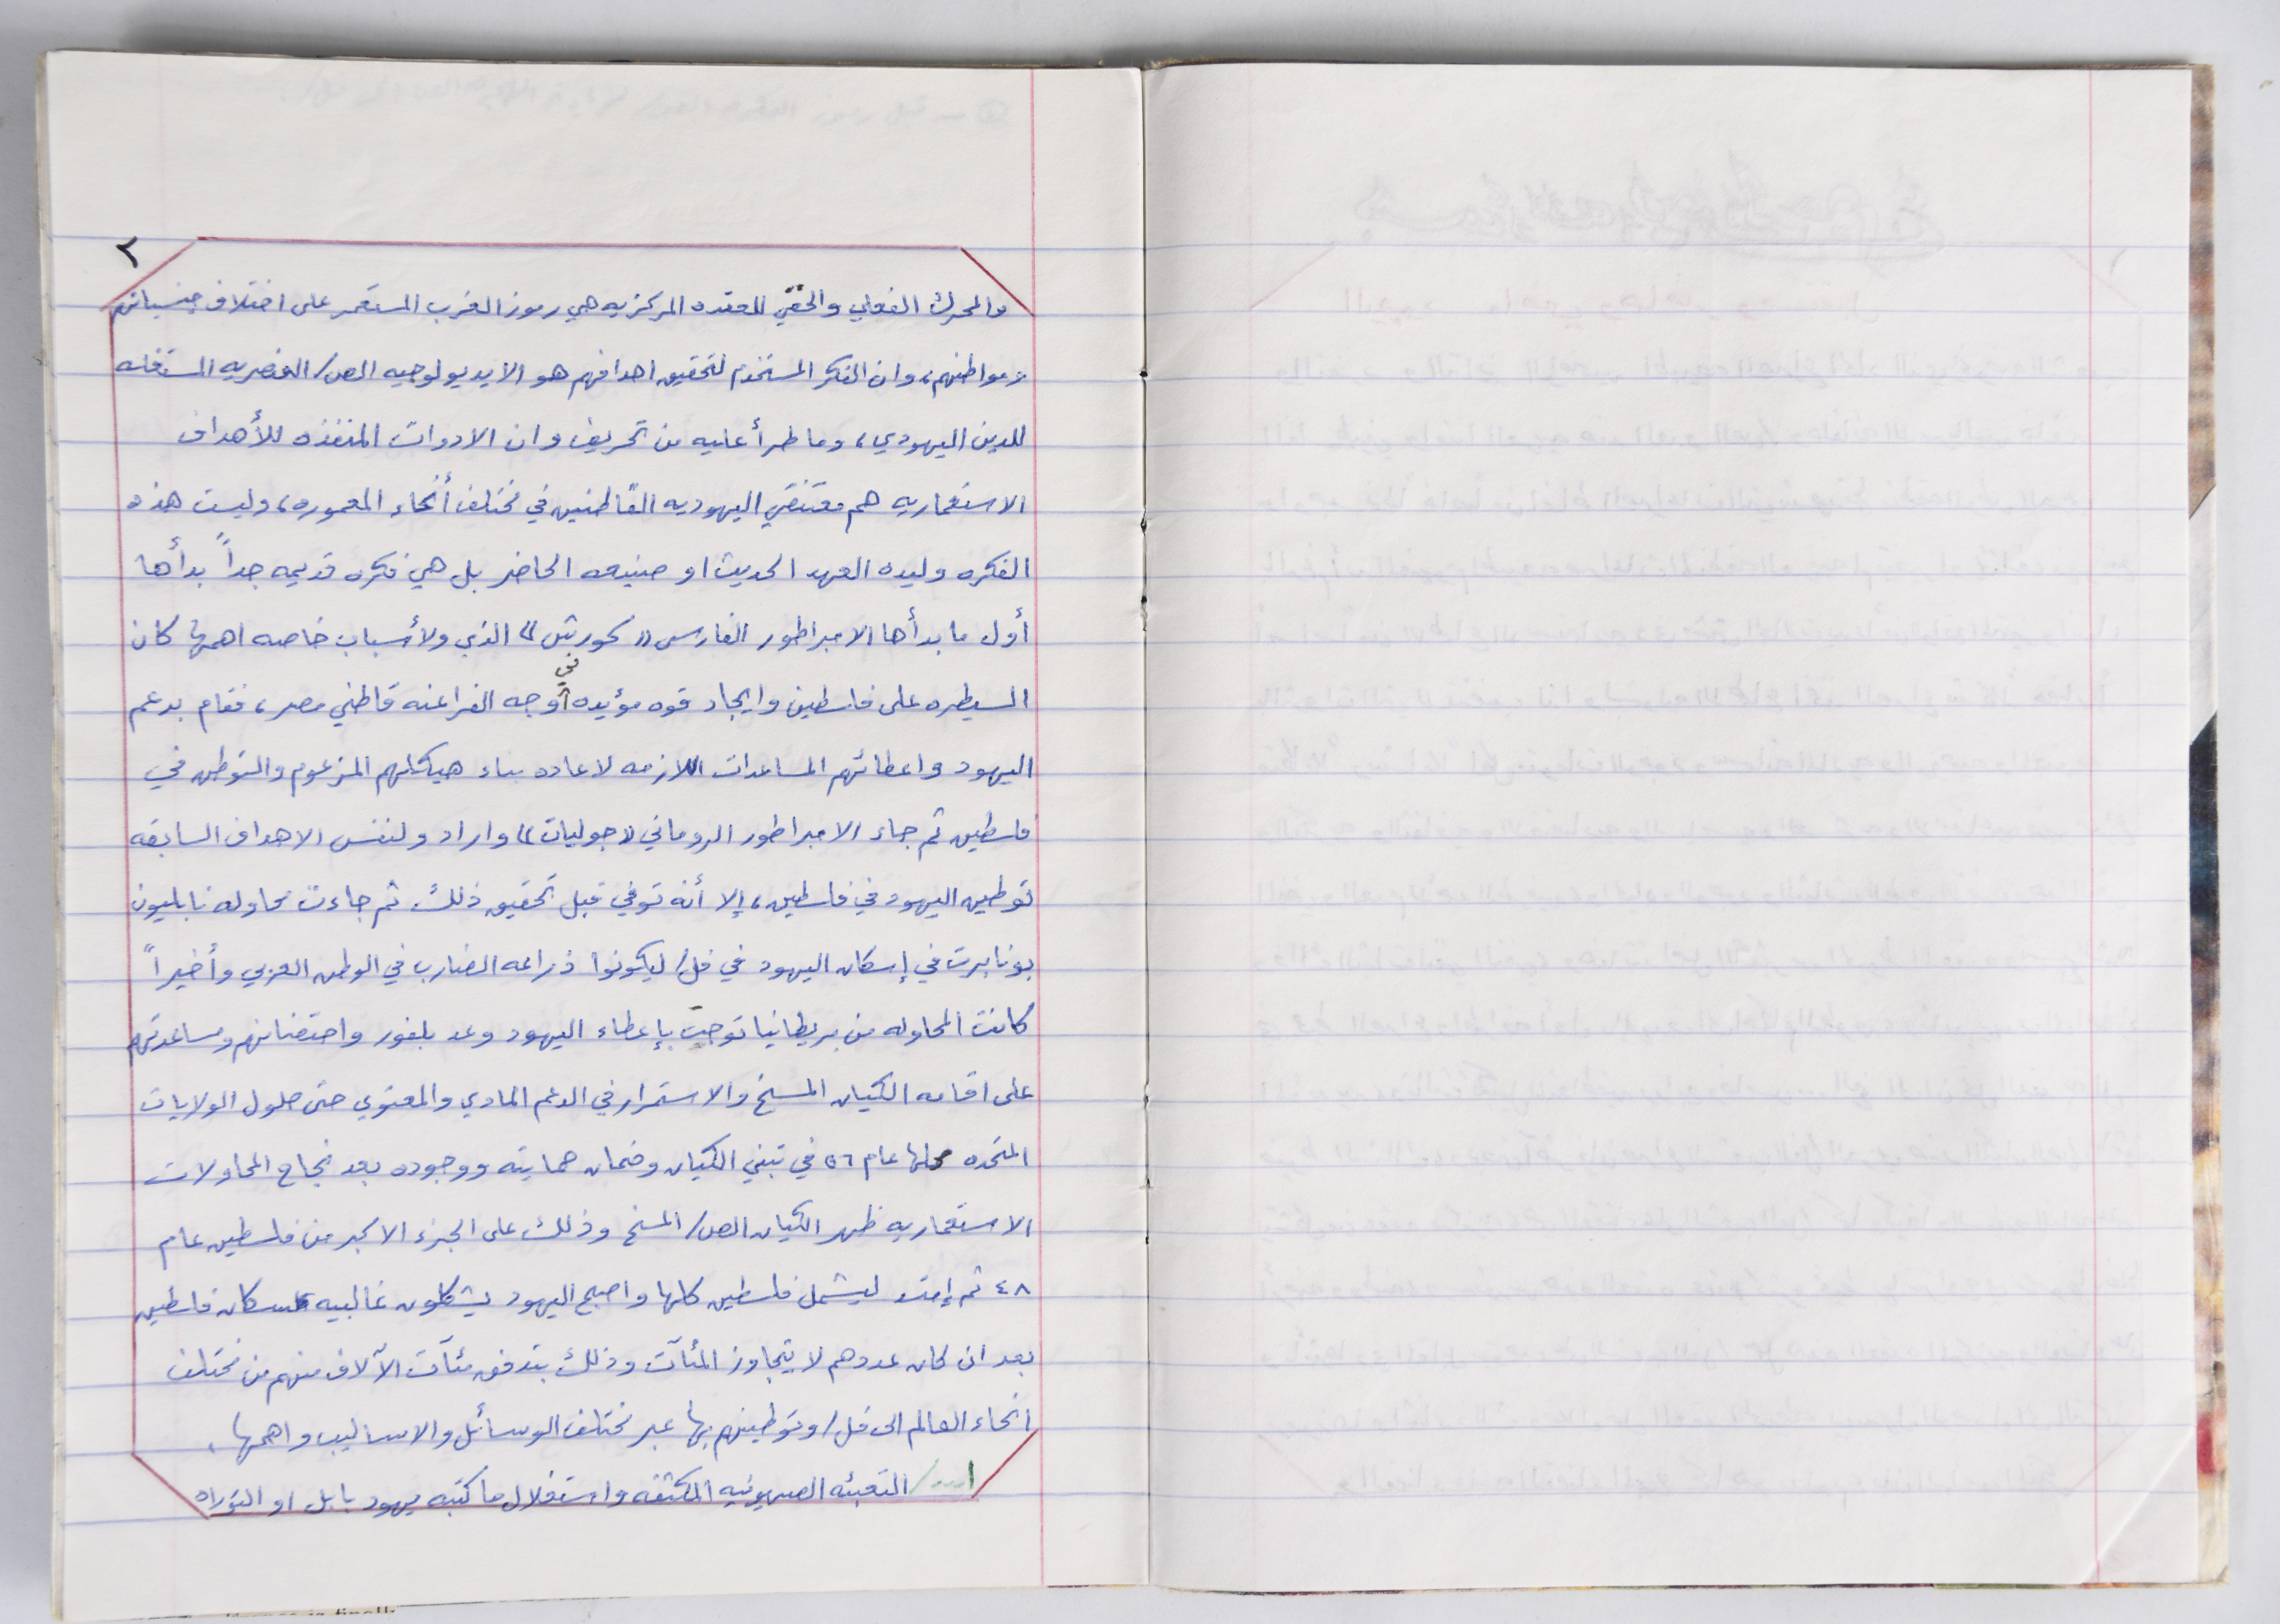 ٢
والمحرك الفعلي والحقيقي للعقده المركزيه هي رموز الغرب المستعمر على اختلاف جنسياتهم
ومواطنهم، وان الفكر المستخدم لتحقيق اهدافهم هو الايديولوجيه الص/ العنصريه المستغله
للدين اليهودي، وما طرأ عليه من تحريف وان الادوات المنفذه للأهداف
الاستعماريه هم معتنقي اليهوديه القاطنين في مختلف أنحاء المعموره، وليست هذه
الفكره وليده العهد الحديث او صنيعه الحاضر بل هي فكره قديمه جداً بدأها
أول ما بدأها الامبراطور الفارسي "كورش" الذي ولأسباب خاصه اهمها كان
السيطره على فلسطين وايجاد قوه مؤيده في وجه الفراعنه قاطني مصر، فقام بدعم
اليهود واعطائهم المساعدات اللازمه لاعاده بناء هيكلهم المزعوم والتوطن في
فلسطين ثم جاء الامبراطور الروماني "جوليات" واراد ولنفس الاهداف السابقه
توطين اليهود في فلسطين، إلا أنه توفي قبل تحقيق ذلك ثم جاءت محاوله نابليون
بونابرت في إسكان اليهود في فل/ ليكونوا ذراعه الضارب في الوطن العربي وأخيراً
كانت المحاوله من بريطانيا توجت بإعطاء اليهود وعد بلفور واحتضانهم ومساعدتهم
على اقامه الكيان المسخ والاستمرار في الدعم المادي والمعنوي حتى حلول الولايات
المتحده محلها عام ٥٦ في تبني الكيان وضمان حمايته ووجوده بعد نجاح المحاولات
الاستعماريه ظهر الكيان الص/ المسخ وذلك على الجزء الاكبر من فلسطين عام
٤٨ ثم إمتد ليشمل فلسطين كلها واصبح اليهود يشكلون غالبيه سكان فلسطين
بعد ان كان عددهم لا يتجاوز المئآت وذلك بتدفق مئآت الآلاف منهم من مختلف
انحاء العالم الى فل/ وتوطينهم بها عبر مختلف الوسائل والاساليب واهمها.
ا.../ التعبئه الصهيونيه المكثفه واستغلال ما كتبه يهود بابل او التوراه